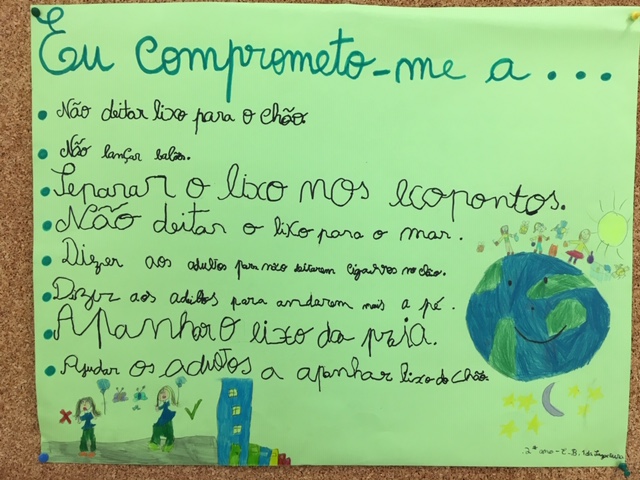 Eu comprometo-me a...
Não deitar lixo para o chão
Não lançar balões.
Separar o lixo nos ecopontos.
Não deitar o lixo para o mar.
Dizer aos adultos para não deitarem cigarros no chão.
Dizer aos adultos para andarem mais a pé.
Apanhar o lixo da praia.
Ajudar os adultos a apanhar lixo do chão.
2º ano - E.B. 1 de